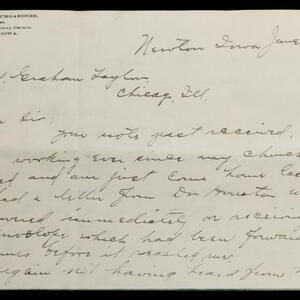 UMGARDNER,
onal Church,
Iowa.
Newton Iowa June
Graham Taylor,
Chicago, Ill.
Sir:
your note just received.
working ever since my church
and am just come home
had a letter from Dr Houston
immediately on receiving
envelope which had been forward
before it reached me.
again not having heard from